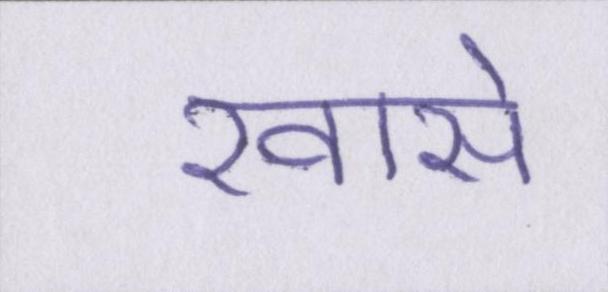 खासे